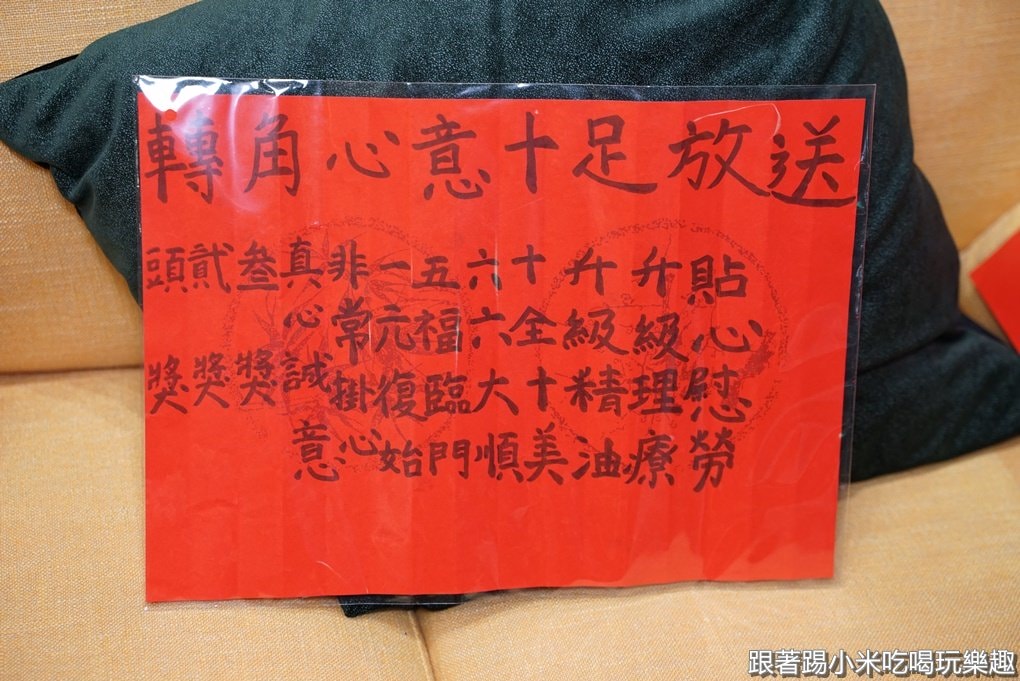 轉角心意十足放送
頭獎
貳獎
叁獎
真心誠意
非常掛心
一元復始
五福臨門
六六大順
十全十美
升級精油
升級理療
貼心慰勞
跟著踢小米吃喝玩樂趣